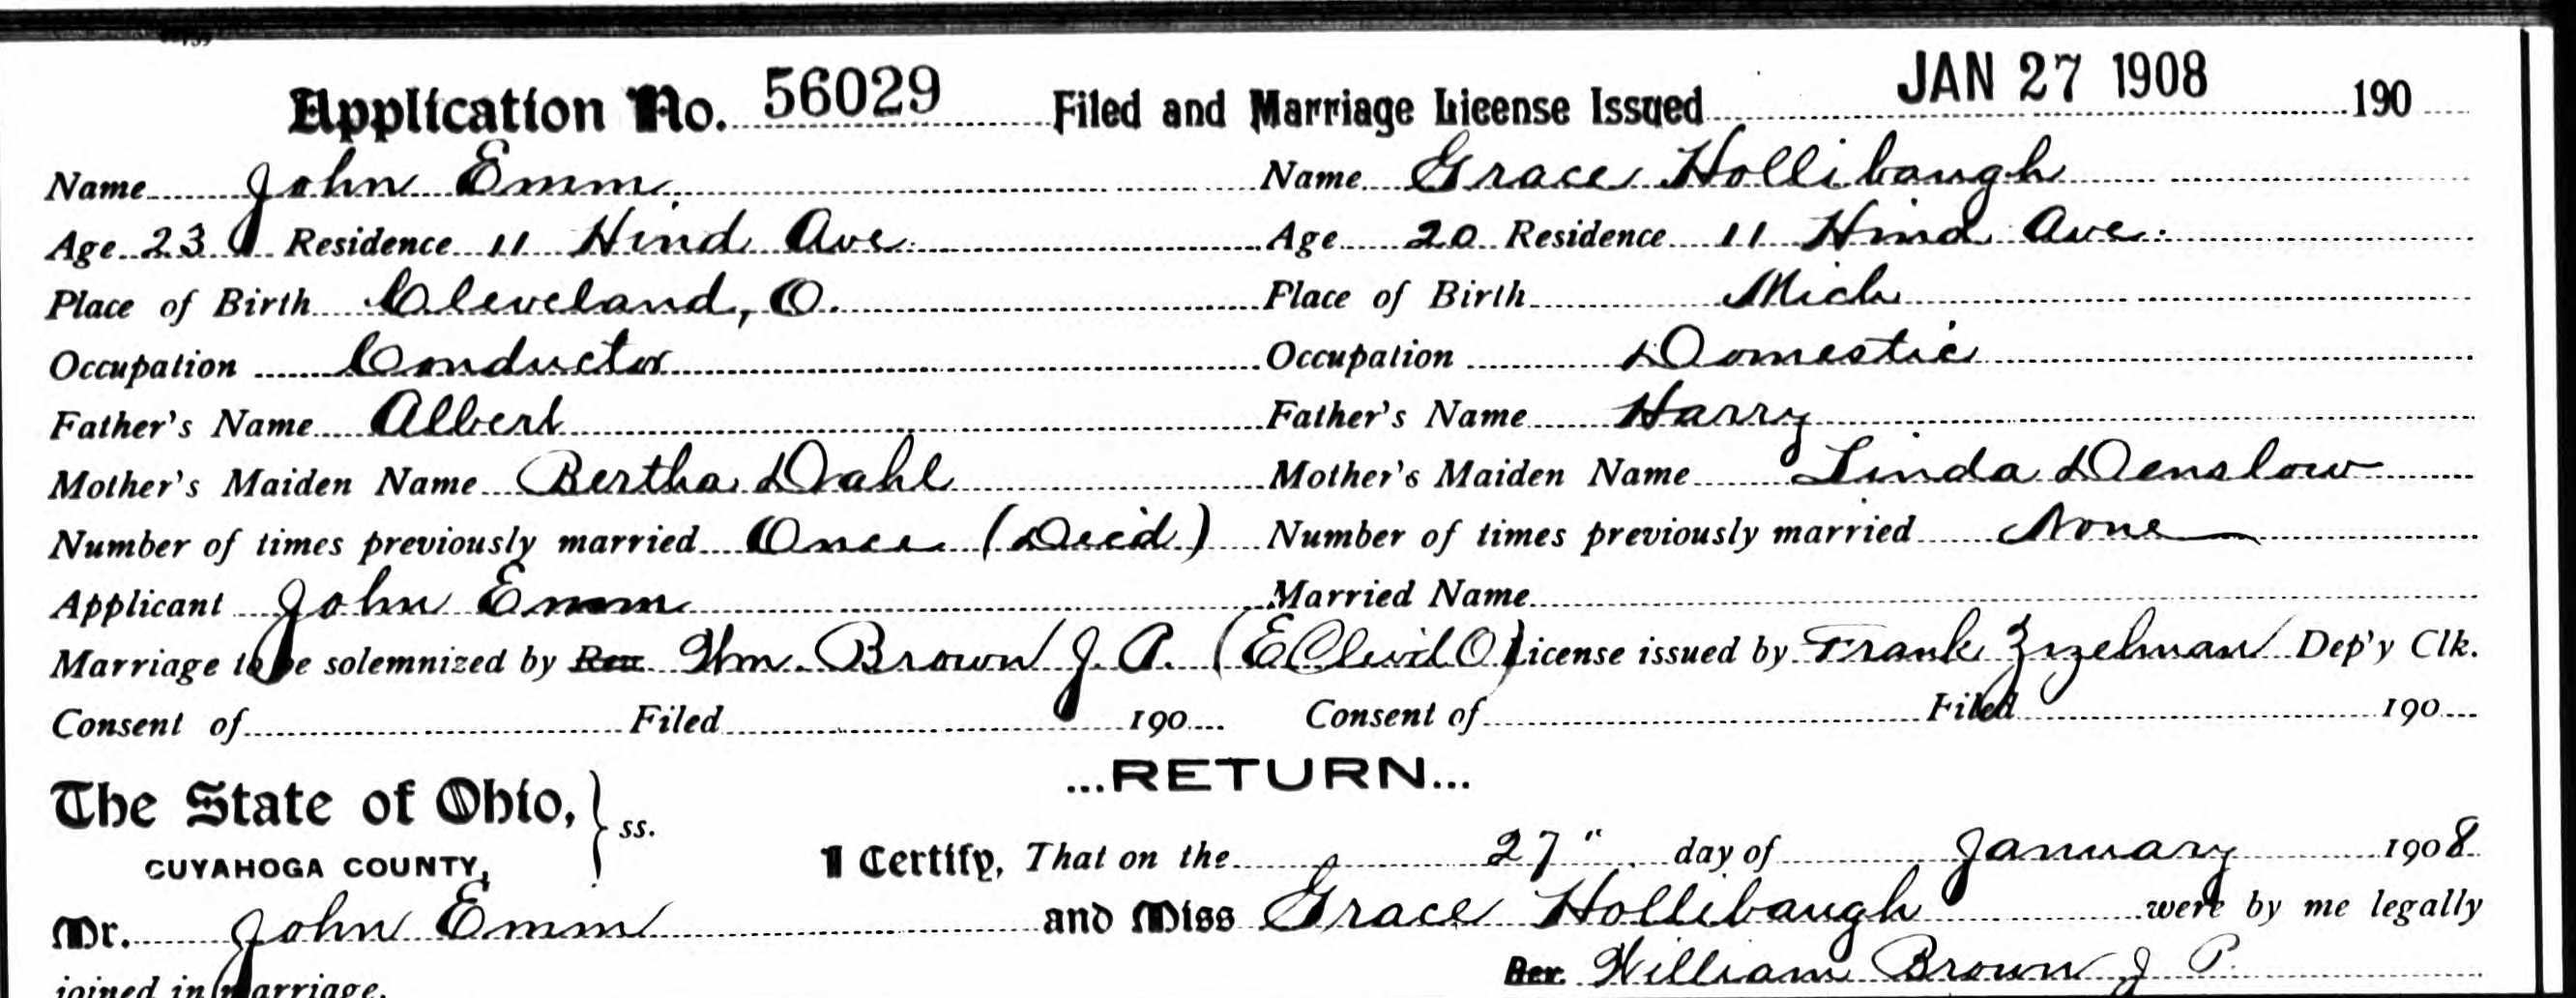 Application No. 56029 Filed and Marriage License Issued JAN 27 1908 190
Name John Emm. Name Grace Hollibaugh
Age 23 Residence 11 Hind Ave. Age 20 Residence 11 Hind Ave.
Place of Birth Cleveland, O. Place of Birth Mich
Occupation Conductor Occupation Domestic
Father's Name Albert Father's Name Harry
Mother's Maiden Name Bertha Dahl Mother's Maiden Name Linda Denslow
Number of times previously married Once (Dec'd) Number of times previously married None
Applicant John Emm Married Name
Marriage to be solemnized by Rev. Wm. Brown J. P. (E Clevd O) License issued by Frank Zizelman Dep'y Clk.
Consent of Filed 190 Consent of Filed 190
...RETURN...
The State of Ohio, } ss.
CUYAHOGA COUNTY,
I Certify, That on the 27" day of January 1908
Mr. John Emm and Miss Grace Hollibaugh were by me legally
joined in marriage. Rev. William Brown J P.